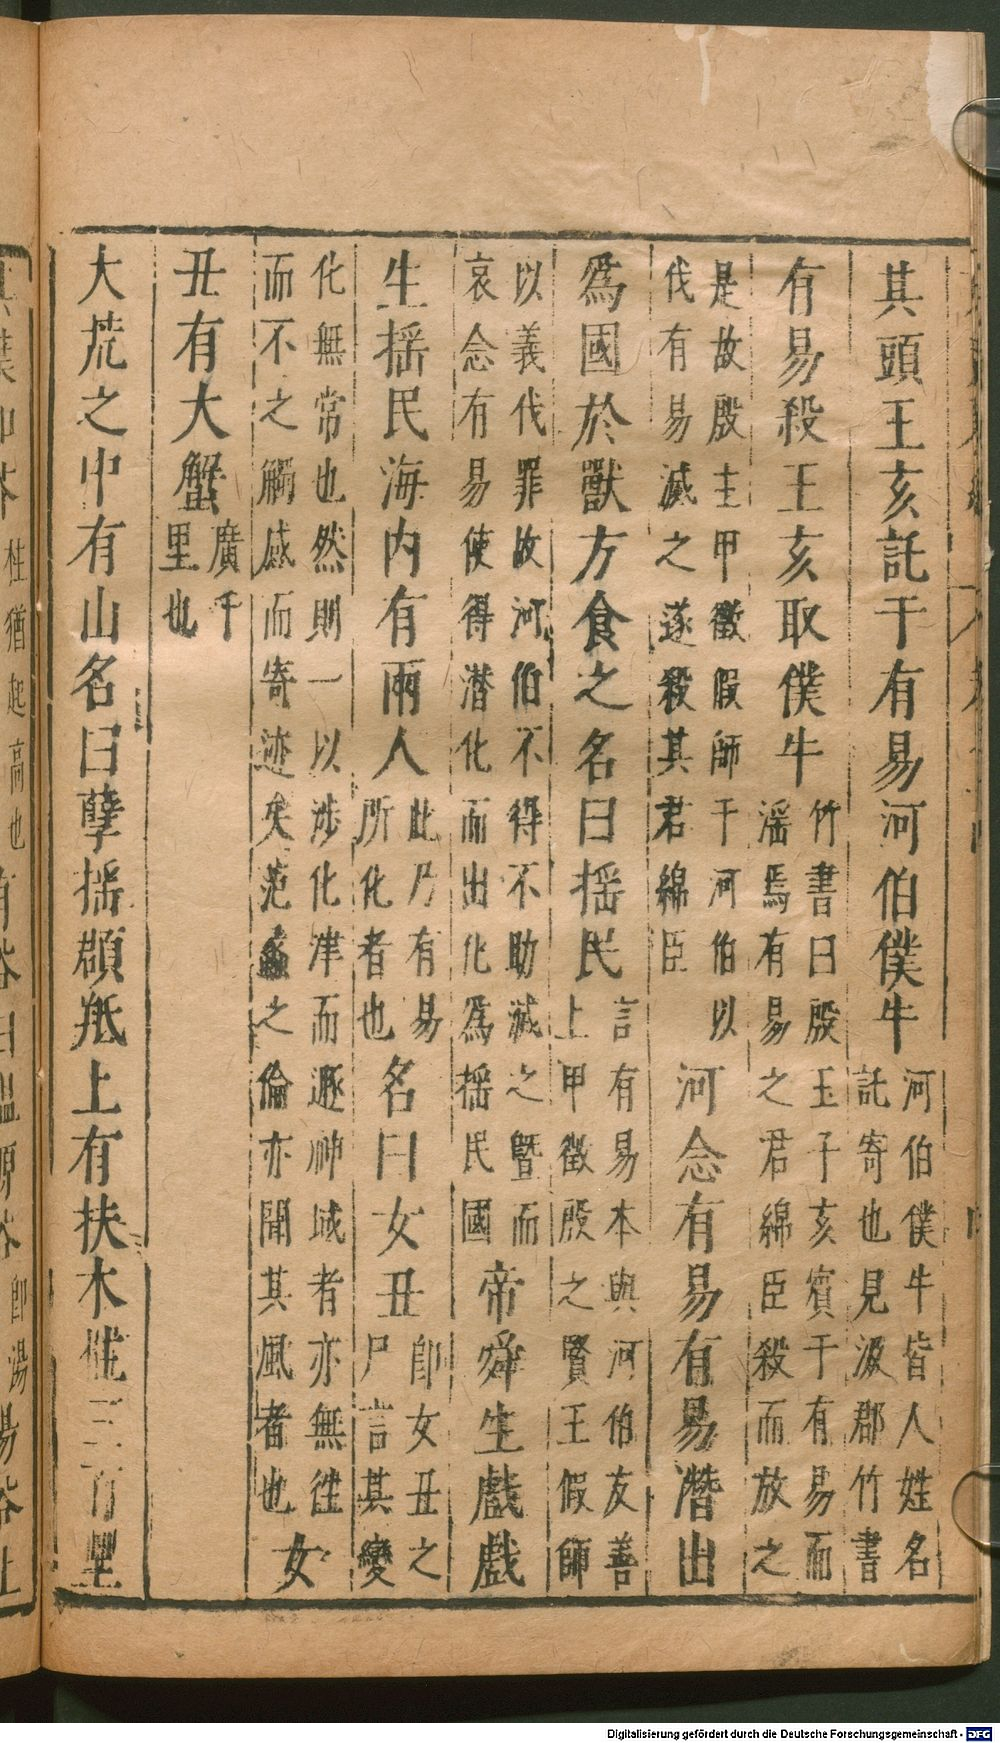 其頭王亥託于有易河伯僕牛河伯僕牛皆人姓名託寄也見汲郡竹書
有易殺王亥取僕牛竹書曰殷王子亥賓于有易而淫焉有易之君綿臣殺而放之
是故殷主甲徵假師于河伯以伐有易滅之遂殺其君綿臣河念有易有易潛出
為國於獸方食之名曰搖民言有易本與河伯友善上甲徵殷之賢王假師
以義伐罪故河伯不得不助滅之曁而哀念有易使得潛化而出化為搖民國帝舜生戲戲
生搖民海內有兩人此乃有易所化者也名曰女丑即女丑之尸言其變
化無常也然則一以涉化津而遯神域者亦無往而不之觸感而寄迹矣范蠡之倫亦聞其風者也女
丑有大蟹廣千里也
大荒之中有山名曰孽搖頵羝上有扶木柱三百里
柱猶起高也即湯
Digitalisierung gefördert durch die Deutsche Forschungsgemeinschaft - DFG